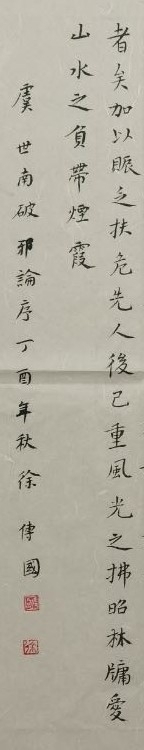 者矣加以賑乏扶危先人後己重風光之拂照林牖愛
山水之負帶煙霞
虞世南破邪論序丁酉年秋徐傳國